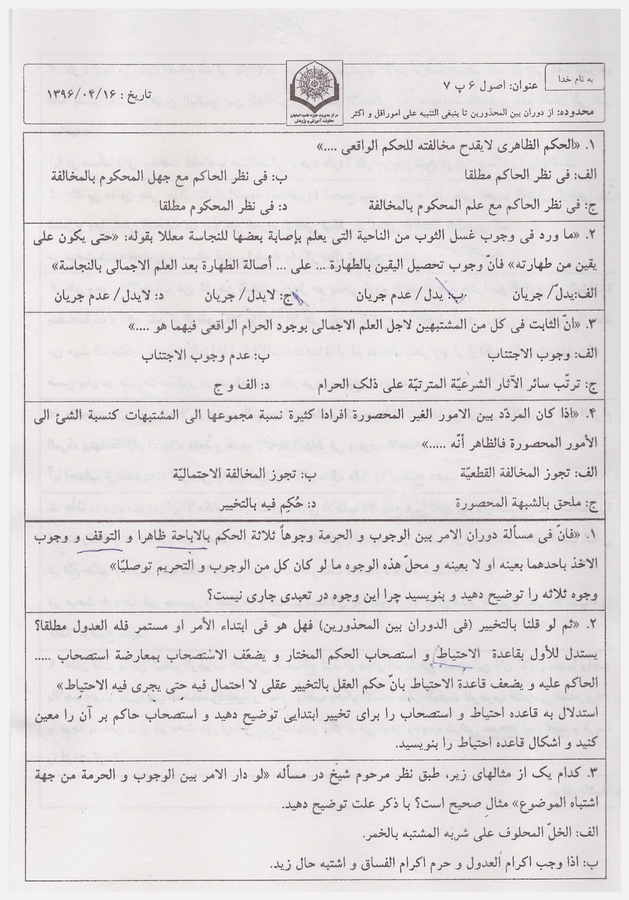 به نام خدا
عنوان: اصول ۶ پ ۷
تاریخ : ۱۳۹۶/۰۴/۱۶
محدوده: از دوران بین المحذورین تا ینبغی التنبیه علی امور اقل و اکثر
مرکز مدیریت حوزه علمیه اصفهان
معاونت آموزش و پژوهش
۱. «الحکم الظاهری لایقدح مخالفته للحکم الواقعی ....»
الف: فی نظر الحاکم مطلقا ب: فی نظر الحاکم مع جهل المحکوم بالمخالفة
ج: فی نظر الحاکم مع علم المحکوم بالمخالفة د: فی نظر المحکوم مطلقا
۲. «ما ورد فی وجوب غسل الثوب من الناحیة التی یعلم بإصابة بعضها للنجاسة معللا بقوله: «حتی یکون علی
یقین من طهارته» فانّ وجوب تحصیل الیقین بالطهارة ... علی ... أصالة الطهارة بعد العلم الاجمالی بالنجاسة»
الف:یدلّ/ جریان ب: یدل/ عدم جریان ج: لایدل/ جریان د: لایدل/ عدم جریان
۳. «انّ الثابت فی کل من المشتبهین لاجل العلم الاجمالی بوجود الحرام الواقعی فیهما هو ....»
الف: وجوب الاجتناب ب: عدم وجوب الاجتناب
ج: ترتّب سائر الآثار الشرعیّة المترتبّة علی ذلک الحرام د: الف و ج
۴. «اذا کان المردّد بین الامور الغیر المحصورة افرادا کثیرة نسبة مجموعها الی المشتبهات کنسبة الشئ الی
الأمور المحصورة فالظاهر أنّه .....»
الف: تجوز المخالفة القطعیّة ب: تجوز المخالفة الاحتمالیّة
ج: ملحق بالشبهة المحصورة د: حُکِم فیه بالتخییر
۱. «فانّ فی مسألة دوران الامر بین الوجوب و الحرمة وجوهاً ثلاثة الحکم بالاباحة ظاهرا و التوقف و وجوب
الاخذ باحدهما بعینه او لا بعینه و محلّ هذه الوجوه ما لو کان کل من الوجوب و التحریم توصلیّا»
وجوه ثلاثه را توضیح دهید و بنویسید چرا این وجوه در تعبدی جاری نیست؟
۲. «ثم لو قلنا بالتخییر (فی الدوران بین المحذورین) فهل هو فی ابتداء الأمر او مستمر فله العدول مطلقا؟
یستدل للأول بقاعدة الاحتیاط و استصحاب الحکم المختار و یضعّف الاستصحاب بمعارضة استصحاب .....
الحاکم علیه و یضعف قاعدة الاحتیاط بانّ حکم العقل بالتخییر عقلی لا احتمال فیه حتی یجری فیه الاحتیاط»
استدلال به قاعده احتیاط و استصحاب را برای تخییر ابتدایی توضیح دهید و استصحاب حاکم بر آن را معین
کنید و اشکال قاعده احتیاط را بنویسید.
۳. کدام یک از مثالهای زیر، طبق نظر مرحوم شیخ در مسأله «لو دار الامر بین الوجوب و الحرمة من جهة
اشتباه الموضوع» مثال صحیح است؟ با ذکر علت توضیح دهید.
الف: الخلّ المحلوف علی شربه المشتبه بالخمر.
ب: اذا وجب اکرام العدول و حرم اکرام الفساق و اشتبه حال زید.